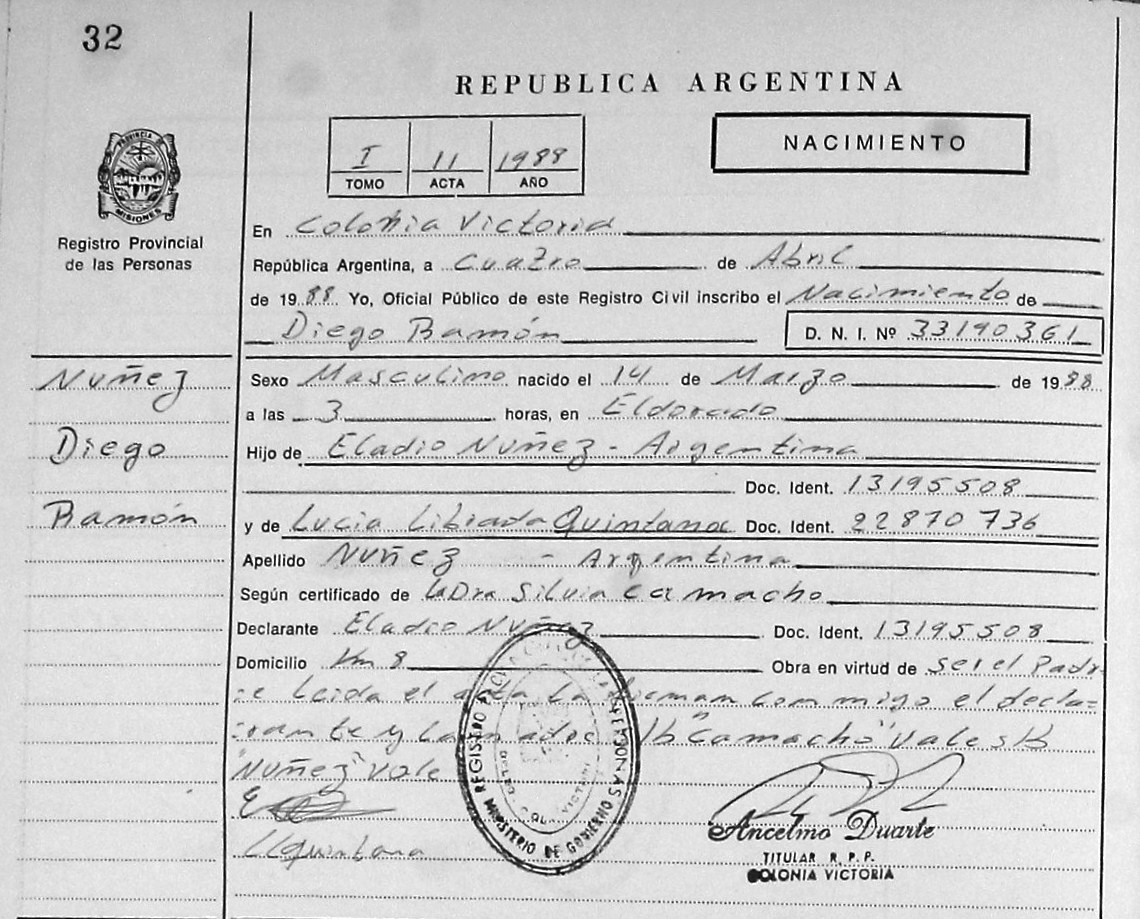 32
REPUBLICA ARGENTINA
I 11 1988
TOMO ACTA AÑO
NACIMIENTO
PROVINCIA DE
MISIONES
Registro Provincial
de las Personas
En Colonia Victoria
República Argentina, a Cuatro de Abril
de 1988 Yo, Oficial Público de este Registro Civil inscribo el Nacimiento de
Diego Ramón D. N. I. Nº 33190361
Nuñez
Diego
Ramón
Sexo Masculino nacido el 14 de Marzo de 1988
a las 3 horas, en Eldorado
Hijo de Eladio Nuñez - Argentina
Doc. Ident. 13195508
y de Lucia Librada Quintana Doc. Ident. 22870736
Apellido Nuñez - Argentina
Según certificado de la Dra Silvia Camacho
Declarante Eladio Nuñez Doc. Ident. 13195508
Domicilio Km 8 Obra en virtud de ser el Padr
e Leida el acta La firman conmigo el decla=
rante y La madre "Camacho" Vale S/B
"Nuñez" Vale
LQuintana
REGISTRO PERSONAS
MINISTERIO DE GOBIERNO
Ancelmo Duarte
TITULAR R. P. P.
COLONIA VICTORIA